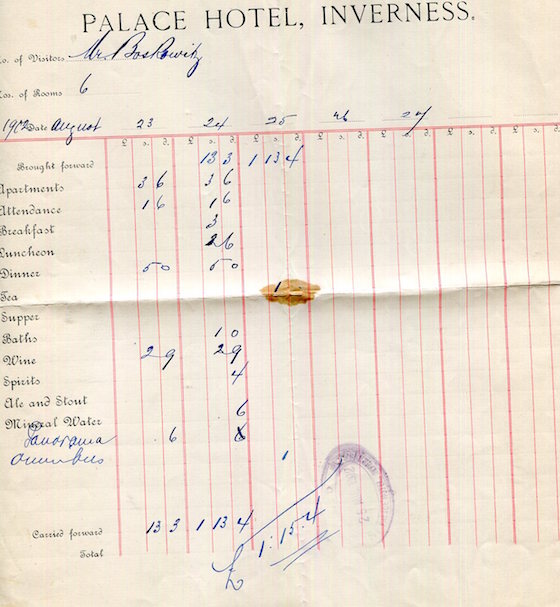 PALACE HOTEL, INVERNESS.
os. of Visitors Mr. Boskowitz
Nos. of Rooms 6
1902 Date August 23 24 25 26 27
£ s. d. £ s. d. £ s. d. £ s. d. £ s. d. £ s. d. £ s. d.
Brought forward 13 3 1 13 4
Apartments 3 6 3 6
Attendance 1 6 1 6
Breakfast 3
Luncheon 2 6
Dinner 5 0 5 0
Tea 1
Supper
Baths 1 0
Wine 2 9 2 9
Spirits 4
Ale and Stout
Mineral Water 6
Panorama 6 6
Omnibus 1
Carried forward 13 3 1 13 4
Total £ 1:15:4